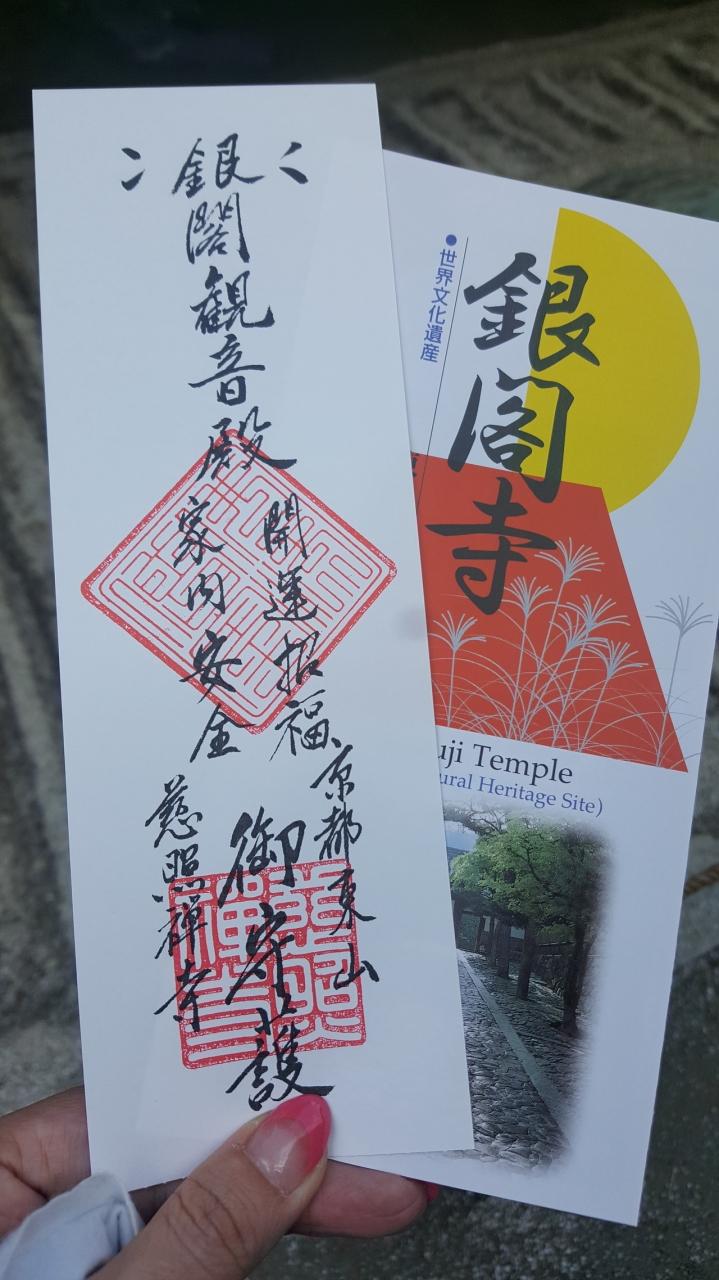 銀閣観音殿
開運招福
家内安全
京都東山
御守護
慈照禅寺
●世界文化遺産
銀閣寺
uji Temple
ural Heritage Site)